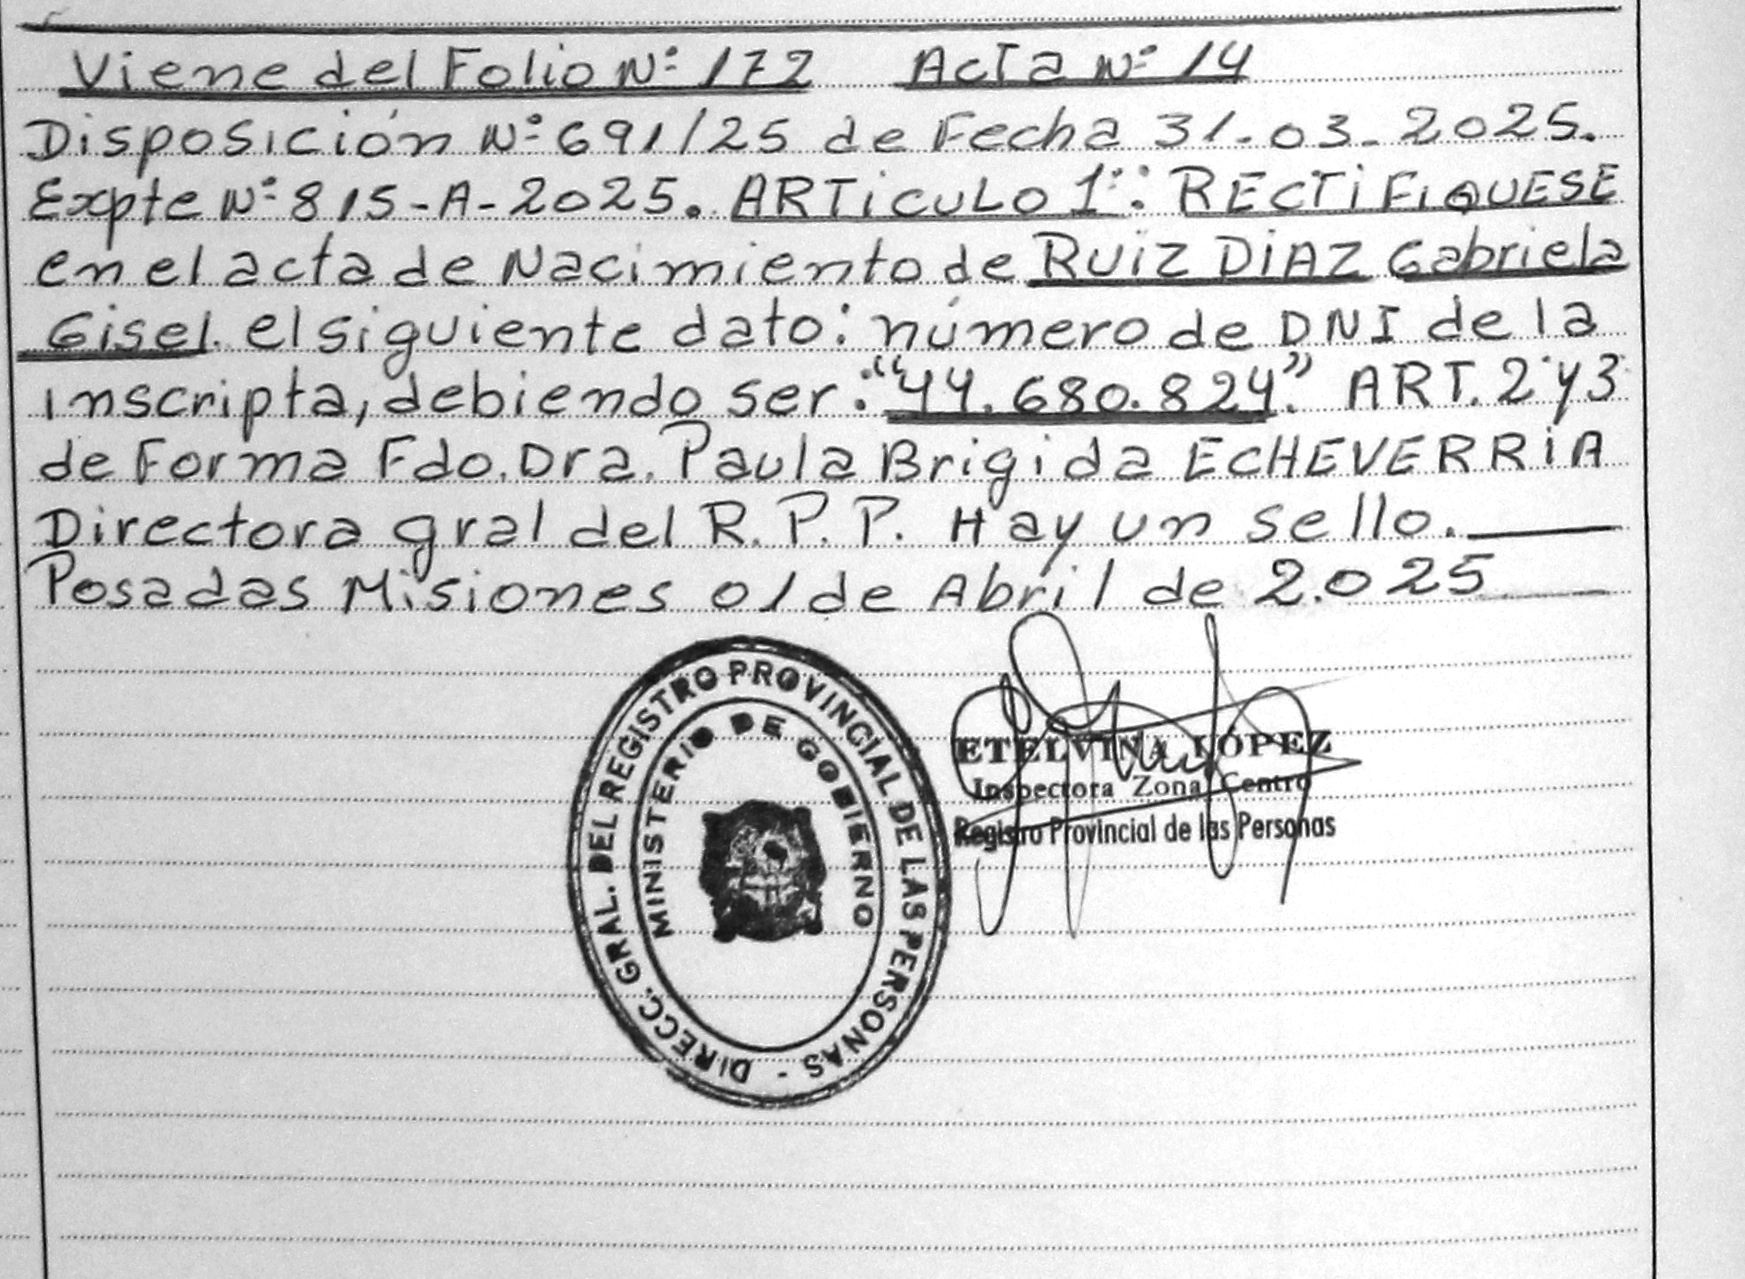 Viene del Folio N° 172 Acta N° 14
Disposición N° 691/25 de Fecha 31-03-2025.
Expte N° 815-A-2025. ARTiCULO 1°: RECTiFiQUESE
en el acta de Nacimiento de RUiZ DiAZ Gabriela
Gisel. el siguiente dato: número de DNI de la
inscripta, debiendo ser: "44.680.824". ART. 2° y 3°
de Forma Fdo. Dra. Paula Brigida ECHEVERRiA
Directora gral del R.P.P. Hay un sello.
Posadas Misiones 01 de Abril de 2.025
DIRECC. GRAL. DEL REGISTRO PROVINCIAL DE LAS PERSONAS -
MINISTERIO DE GOBIERNO
ETELVINA LÓPEZ
Inspectora Zona Centro
Registro Provincial de las Personas